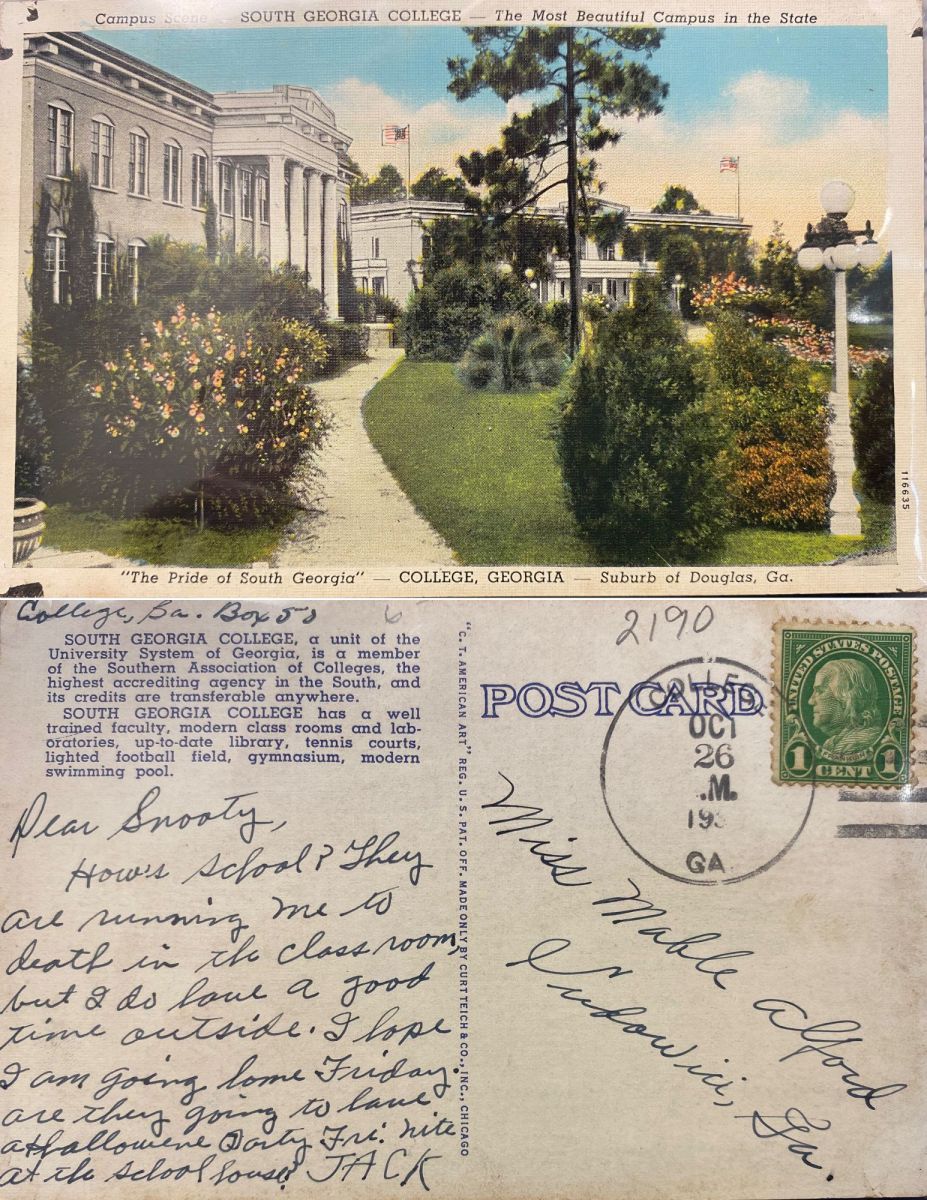 Campus Scene — SOUTH GEORGIA COLLEGE — The Most Beautiful Campus in the State
116635
"The Pride of South Georgia" — COLLEGE, GEORGIA — Suburb of Douglas, Ga.
College, Ga. Box 50
6
SOUTH GEORGIA COLLEGE, a unit of the
University System of Georgia, is a member
of the Southern Association of Colleges, the
highest accrediting agency in the South, and
its credits are transferable anywhere.
SOUTH GEORGIA COLLEGE has a well
trained faculty, modern class rooms and lab-
oratories, up-to-date library, tennis courts,
lighted football field, gymnasium, modern
swimming pool.
Dear Snooty,
How's school? They
are running me to
death in the class room,
but I do have a good
time outside. I hope
I am going home Friday.
are they going to have
a Hallowene Party Fri. nite
at the school house? JACK
"C. T. AMERICAN ART" REG. U. S. PAT. OFF. MADE ONLY BY CURT TEICH & CO., INC., CHICAGO
2190
POST CARD
COLLEGE
OCT
26
.M.
193
GA.
UNITED STATES POSTAGE
FRANKLIN
1 CENT 1
Miss Mable Alford
Ludowici, Ga.